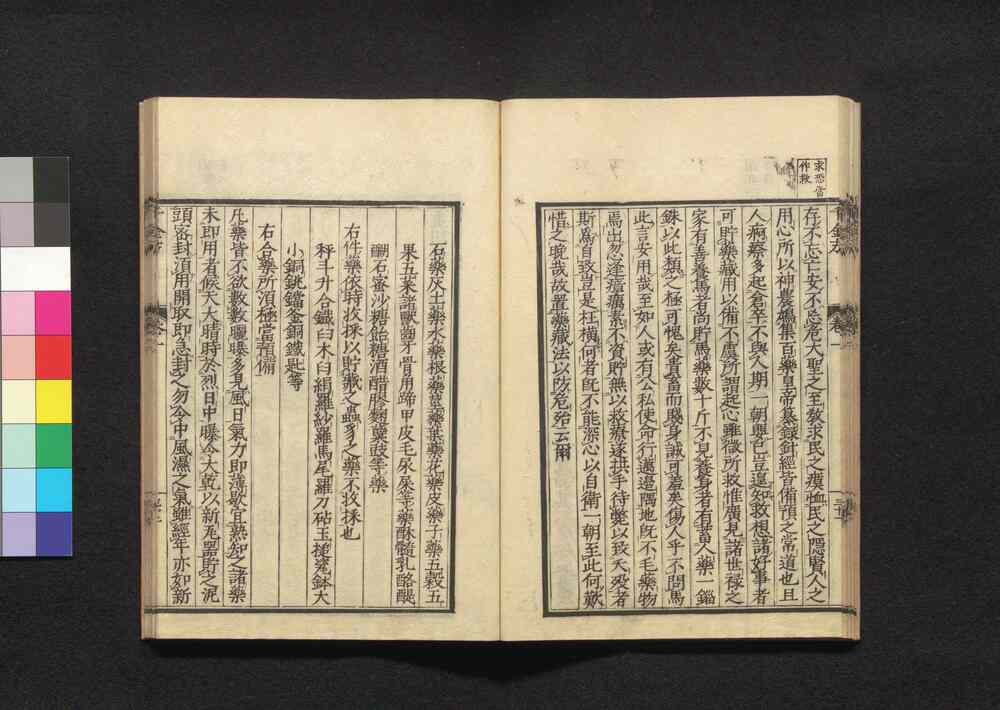 求恐當
作救
存不忘亡安不忘危大聖之至教求民之瘼恤民之隱賢人之
用心所以神農鳩集百藥皇帝纂錄針經皆備預之常道也且
人痾瘵多起倉卒不與人期一朝嬰已豈遑知救想諸好事者
可貯藥藏用以備不虞所謂起心雖微所救惟廣見諸世禄之
家有善養馬者尚貯馬藥數十斤不見養身者有蓄人藥一錙
銖以此類之極可愧矣貴畜而賤身誠可羞矣傷人乎不問馬
此言安用哉至如人或有公私使命行邁邊隅地既不毛藥物
焉出忽逢瘴癘素不資貯無以救療遂拱手待斃以致夭殁者
斯爲自致豈是枉橫何者既不能深心以自衛一朝至此何歎
惜之晚哉故置藥藏法以防危殆云爾
石藥灰土藥水藥根藥莖藥葉藥花藥皮藥子藥五穀五
果五菜諸獸齒牙骨角蹄甲皮毛尿屎等藥酥髓乳酪醍
醐石蜜沙糖飴糖酒醋膠麴糵豉等藥
右件藥依時收採以貯藏之蟲豸之藥不收採也
秤斗升合鐵臼木臼絹羅紗羅馬尾羅刀砧玉槌瓷鉢大
小銅銚鐺釜銅鐵匙等
右合藥所須極當預備
凡藥皆不欲數數曬曝多見風日氣力即薄歇宜熟知之諸藥
未即用者候天大晴時於烈日中曝令大乾以新瓦器貯之泥
頭密封須用開取即急封之勿令中風濕之氣雖經年亦如新